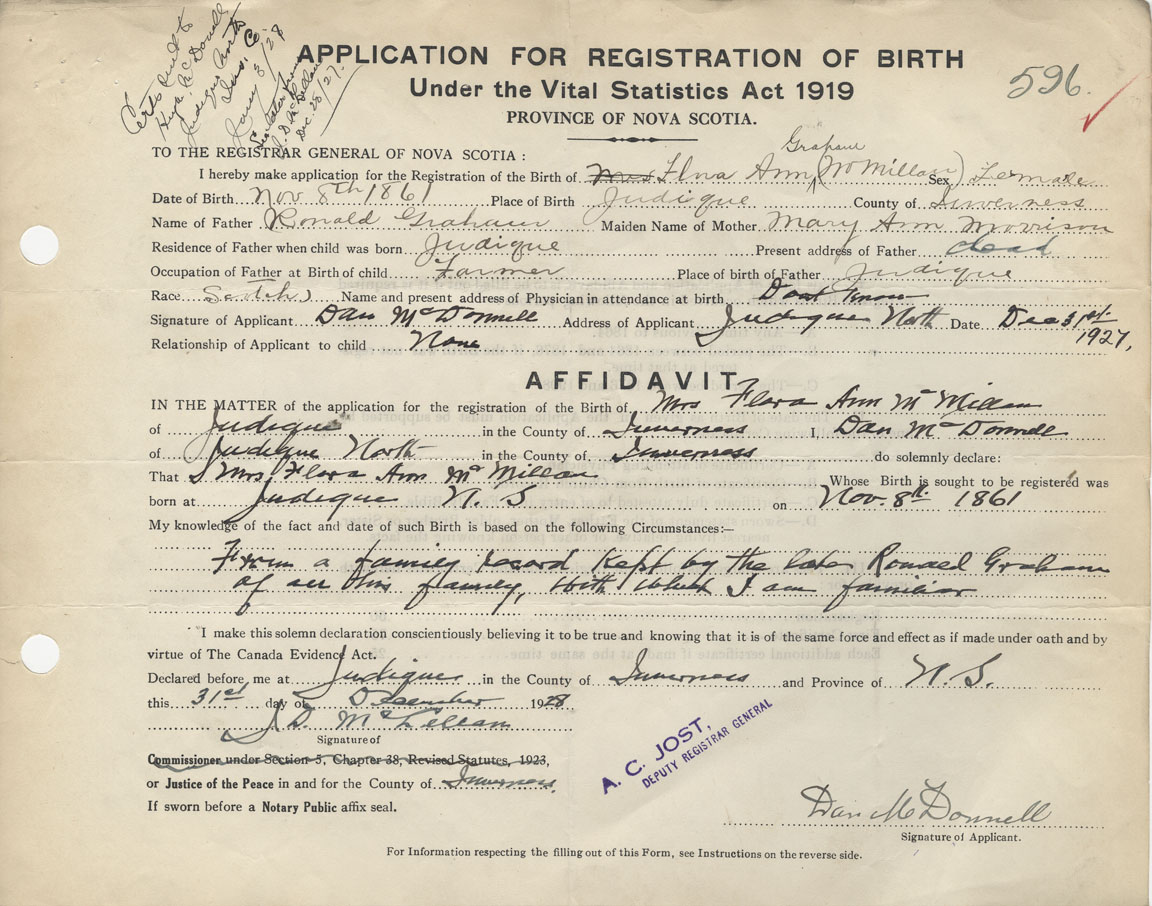 Certs sent to
Hugh McDonell
Judique North
Inv. Co
Jany 3/28
J. D. McLellan
Dec. 28/27.
APPLICATION FOR REGISTRATION OF BIRTH
Under the Vital Statistics Act 1919
PROVINCE OF NOVA SCOTIA.
596.
TO THE REGISTRAR GENERAL OF NOVA SCOTIA :
Graham
I hereby make application for the Registration of the Birth of Mrs Flora Ann (McMillan) Sex Female
Date of Birth Nov 8th 1861 Place of Birth Judique County of Inverness
Name of Father Ronald Graham Maiden Name of Mother Mary Ann Morrison
Residence of Father when child was born Judique Present address of Father dead
Occupation of Father at Birth of child Farmer Place of birth of Father Judique
Race Scotch Name and present address of Physician in attendance at birth Dont know
Signature of Applicant Dan McDonnell Address of Applicant Judique North Date Dec 31st
1927,
Relationship of Applicant to child None
AFFIDAVIT
IN THE MATTER of the application for the registration of the Birth of Mrs Flora Ann McMillan
of Judique in the County of Inverness I Dan McDonnell
of Judique North in the County of Inverness do solemnly declare:
That Mrs Flora Ann McMillan Whose Birth is sought to be registered was
born at Judique N. S on Nov. 8th 1861
My knowledge of the fact and date of such Birth is based on the following Circumstances:—
From a family record kept by the late Ronald Graham
of his family, With which I am familiar
I make this solemn declaration conscientiously believing it to be true and knowing that it is of the same force and effect as if made under oath and by
virtue of The Canada Evidence Act.
Declared before me at Judique in the County of Inverness and Province of N. S.
this 31st day of December 1928
J. D. McLellan
Signature of
Commissioner under Section 5, Chapter 38, Revised Statutes, 1923,
or Justice of the Peace in and for the County of Inverness.
If sworn before a Notary Public affix seal.
A. C. JOST,
DEPUTY REGISTRAR GENERAL
Dan McDonnell
Signature of Applicant.
For Information respecting the filling out of this Form, see Instructions on the reverse side.